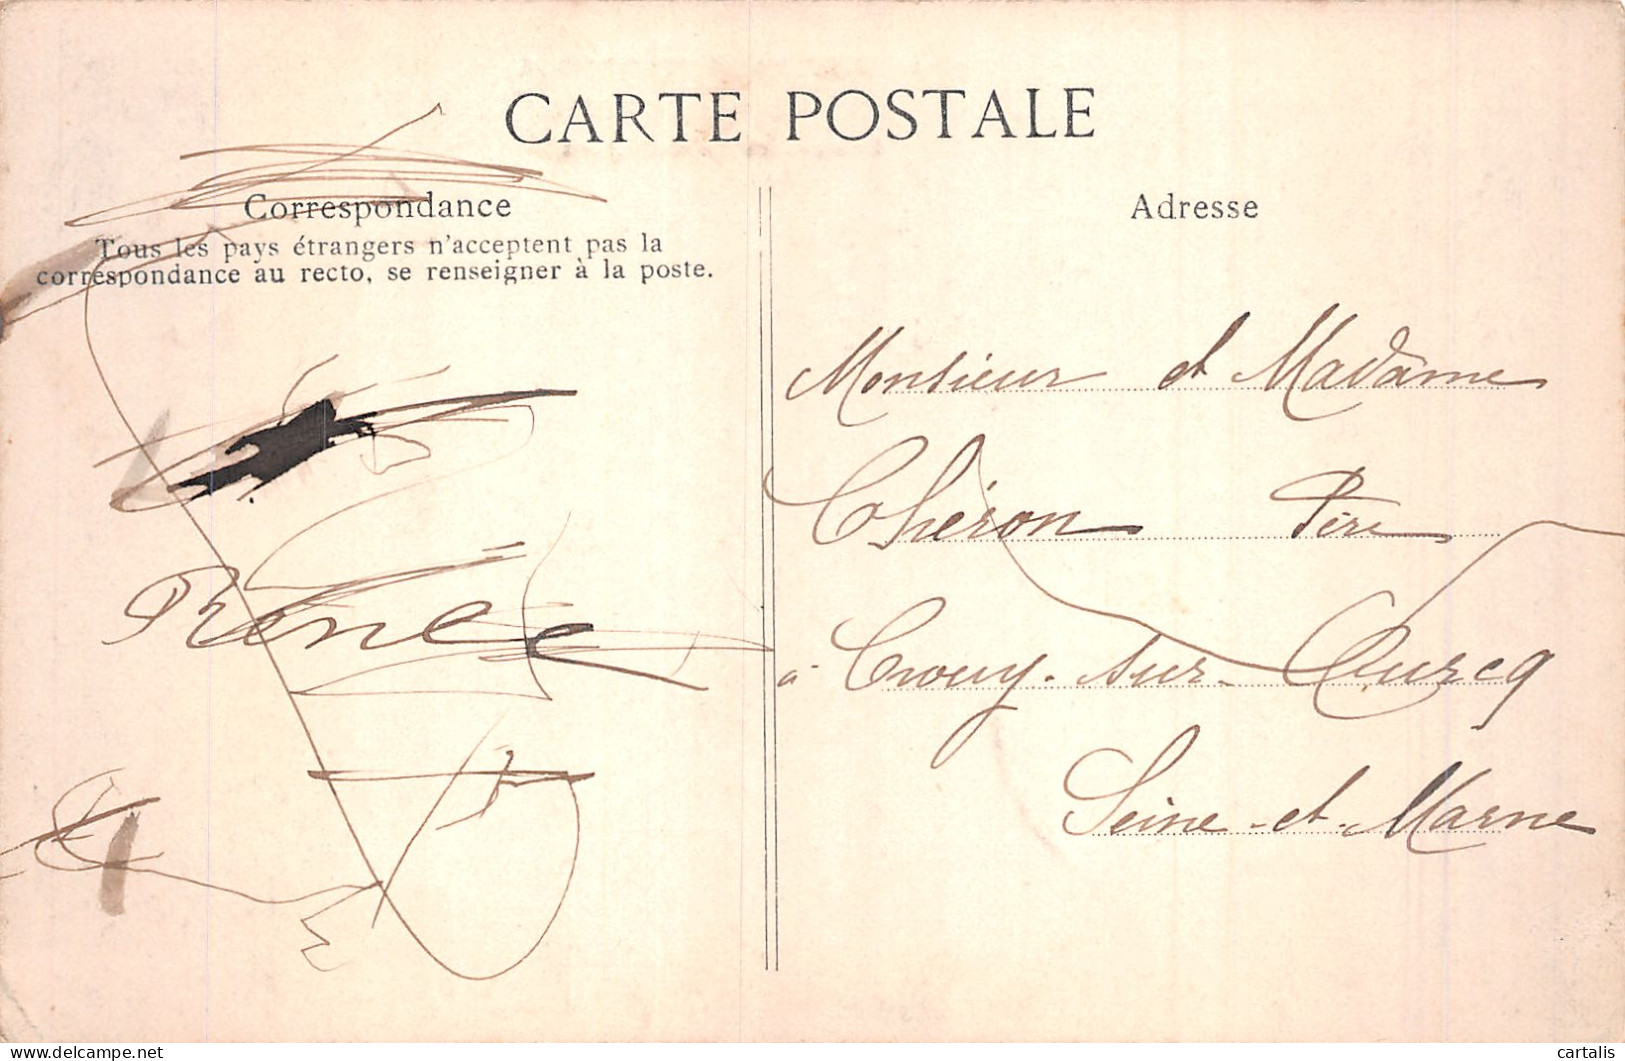 CARTE POSTALE
Correspondance
Tous les pays étrangers n'acceptent pas la
correspondance au recto, se renseigner à la poste.
Renée
Adresse
Monsieur et Madame
Chéron Père
à Crouy-sur-Ourcq
Seine-et-Marne
delcampe.net
cartalis